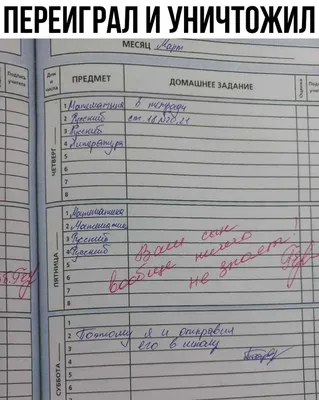 ПЕРЕИГРАЛ И УНИЧТОЖИЛ
МЕСЯЦ Март
Подпись учителя
Дни и числа
ПРЕДМЕТ
ДОМАШНЕЕ ЗАДАНИЕ
Оценка
ЧЕТВЕРГ
1 Математика в тетради
2 Русский
3 Русский
4 Литература
5
6
7
8
ПЯТНИЦА
1 Математика
2 Математика
3 Русский
4 Русский
5
6
7
8
Ваш сын
вообще ничего
не знает!
СУББОТА
1
2 Поэтому я и отправил
3 его в школу
4
5
6
7
8